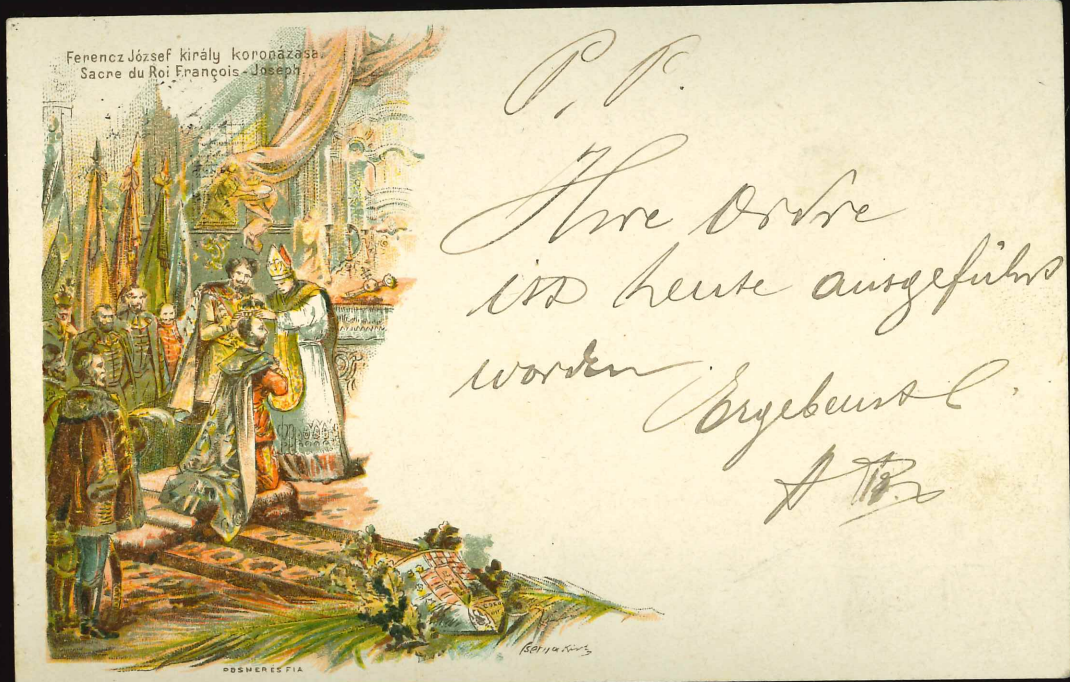 Ferencz József király koronázása.
Sacre du Roi François-Joseph.
P. P.
Ihre Ordre
ist heute ausgeführt
worden
Ergebenst
POSNER ÉS FIA